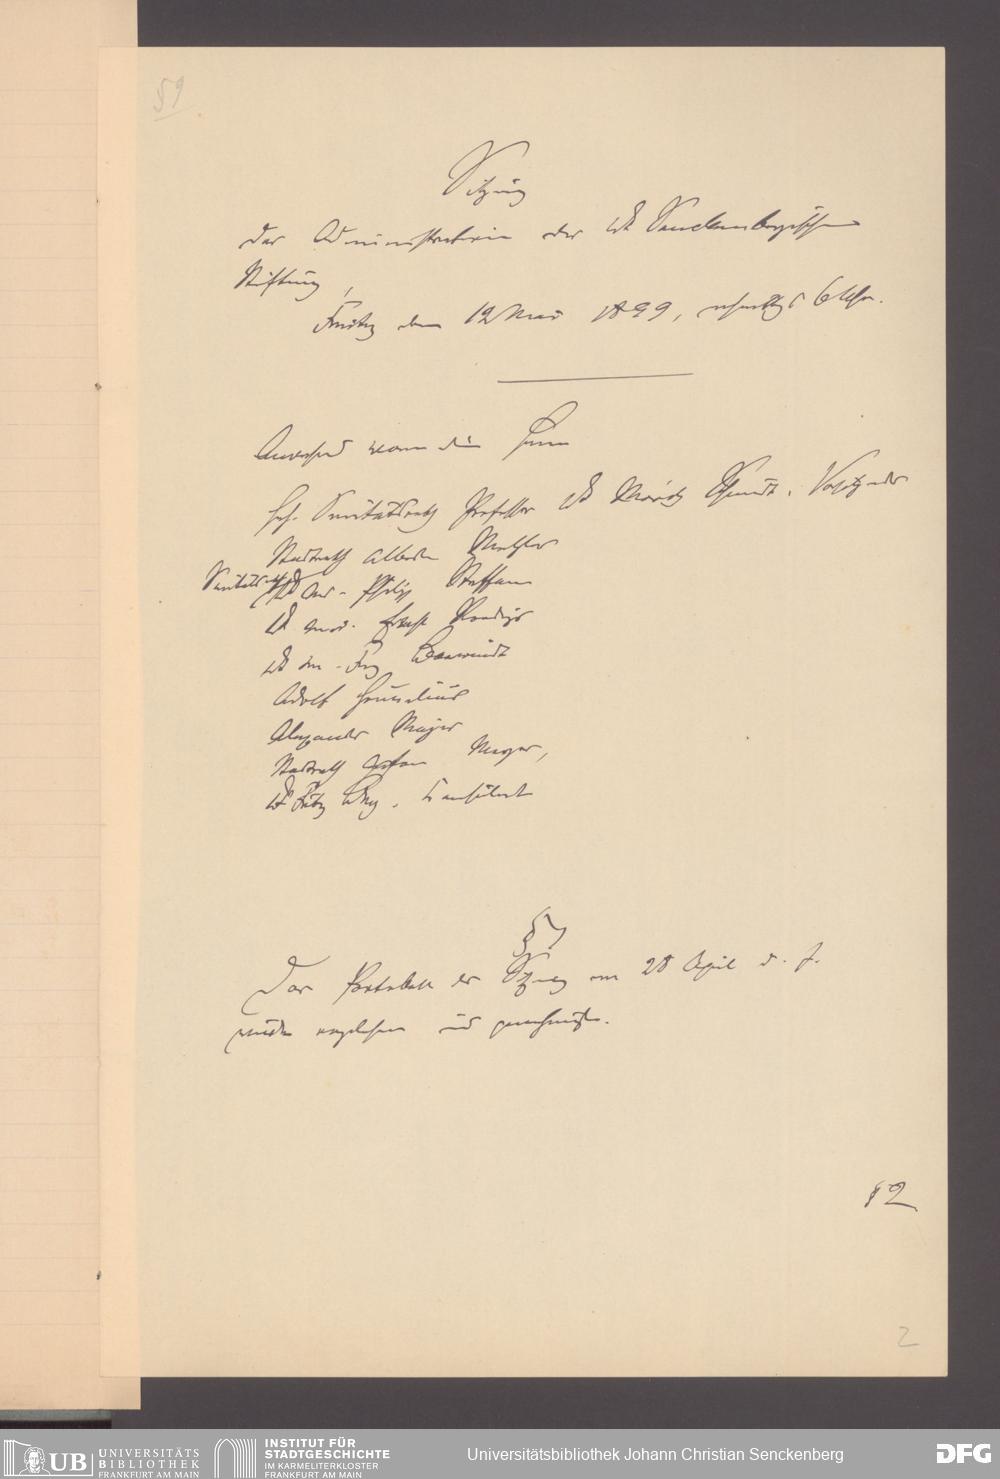 59
Sitzung
der Administration der Dr Senckenbergischen
Stiftung,
Freitag den 12 Mai 1899, nachmittags 6 Uhr.
Anwesend waren die Herren
Geh. Sanitätsrath Professor Dr Moritz Schmidt, Vorsitzender
Stadtrath Albert Metzler
Sanitätsrath Dr med. Philipp Steffan
Dr med. Ernst Roediger
Dr jur. Fritz Berwindt
Adolf
Alexander Majer
Stadtrath Meyer,
Dr Fritz Consulent
§ 1
Das Protokoll der Sitzung vom 28 April d. J.
wurde verlesen und genehmigt.
§ 2
2
UB UNIVERSITÄTS
BIBLIOTHEK
FRANKFURT AM MAIN
INSTITUT FÜR
STADTGESCHICHTE
IM KARMELITERKLOSTER
FRANKFURT AM MAIN
Universitätsbibliothek Johann Christian Senckenberg
DFG